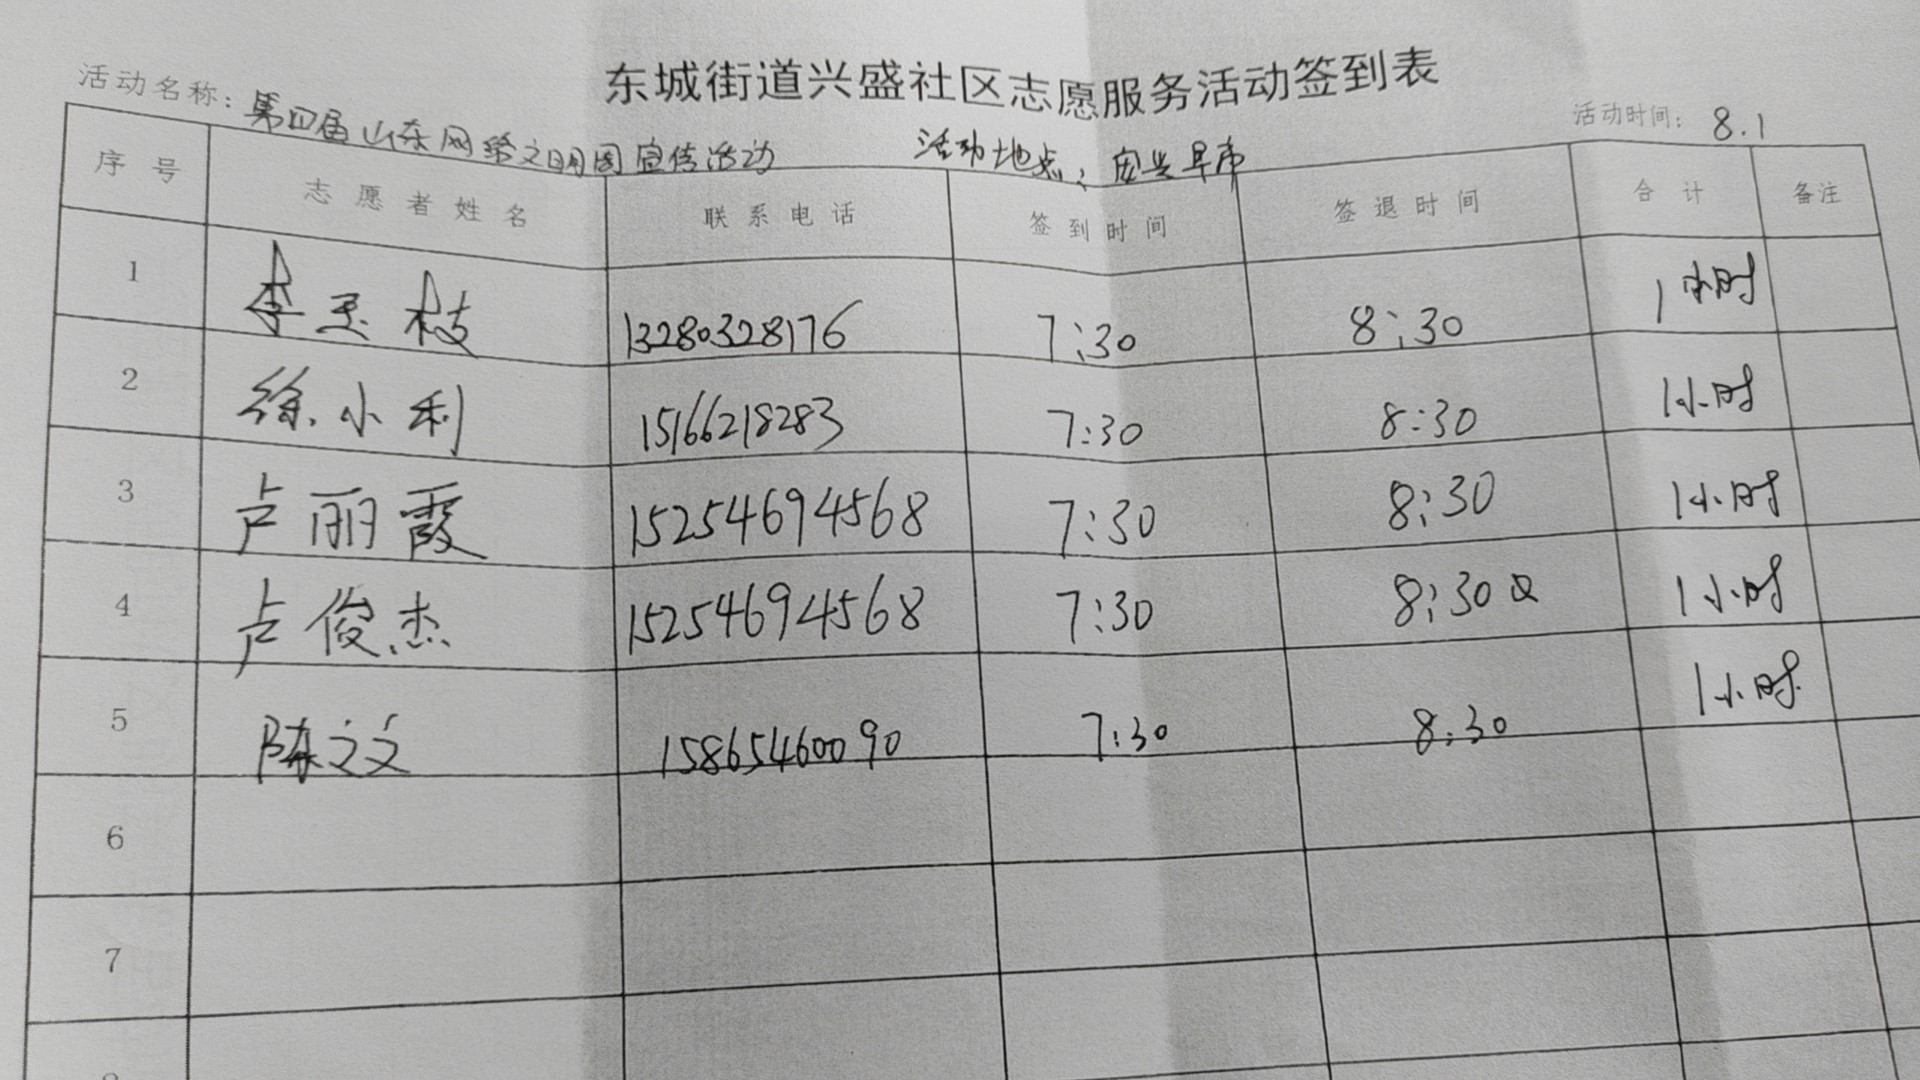 东城街道兴盛社区志愿服务活动签到表
活动名称：第四届山东网络文明周宣传活动 活动地点：安兴早市 活动时间：8.1
序号 志愿者姓名 联系电话 签到时间 签退时间 合计 备注
1 李玉枝 13280328176 7:30 8:30 1小时
2 徐小利 15166218283 7:30 8:30 1小时
3 卢丽霞 15254694568 7:30 8:30 1小时
4 卢俊杰 15254694568 7:30 8:30 1小时
5 陈文文 15865460090 7:30 8:30 1小时
6
7